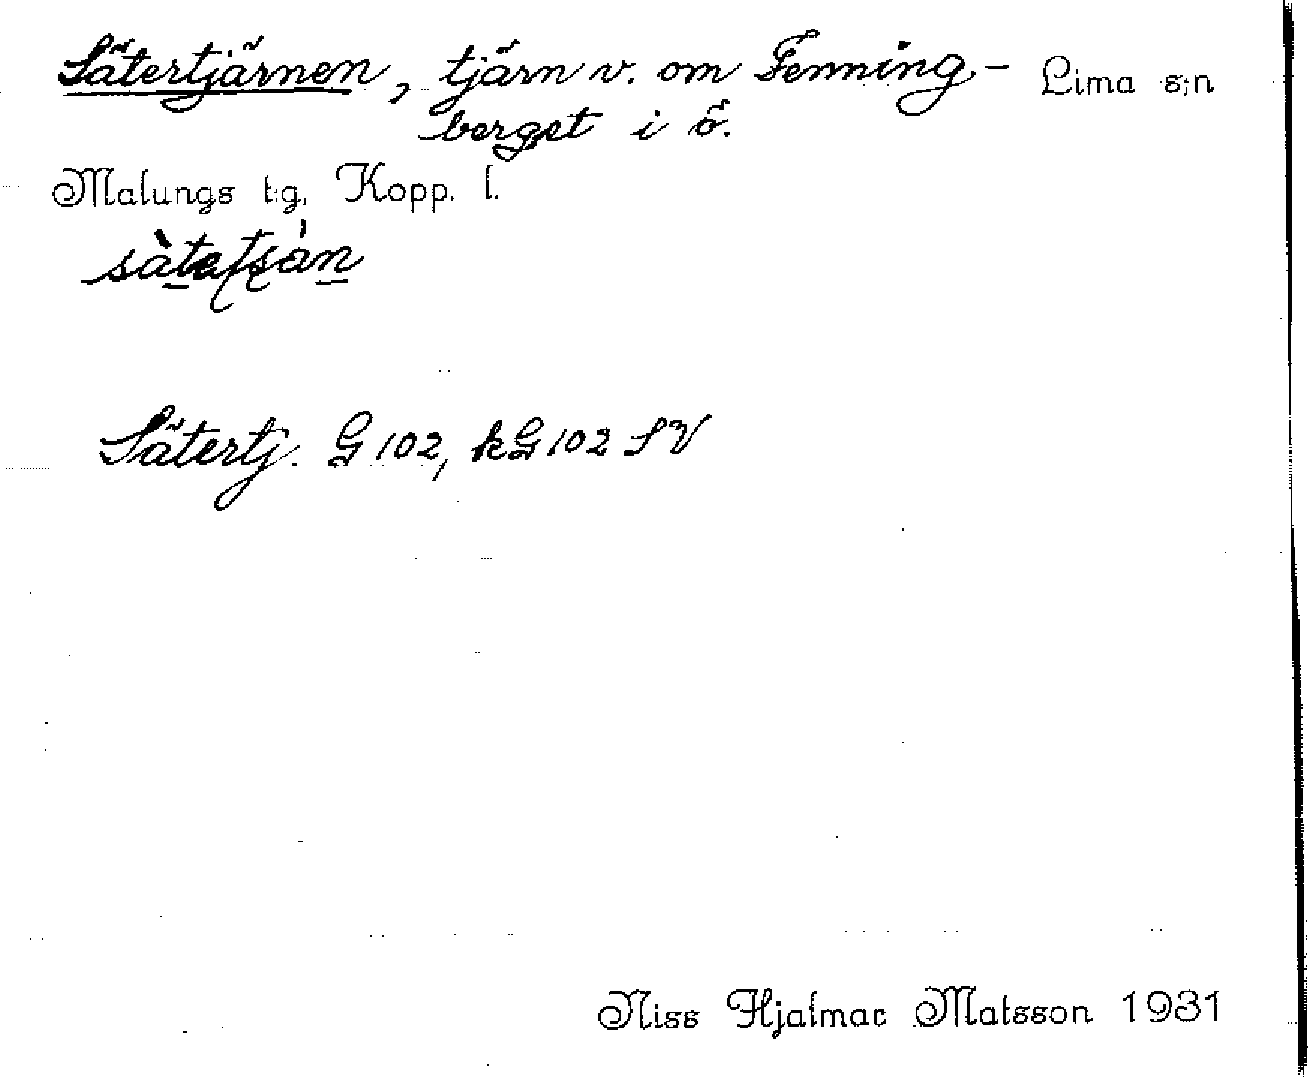 Sätertjärnen, tjärn v. om Fenning- Lima s:n
berget i ö.
Malungs t:g, Kopp. l.
Sätertj. G 102, kG 102 SV
Niss Hjalmar Matsson 1931